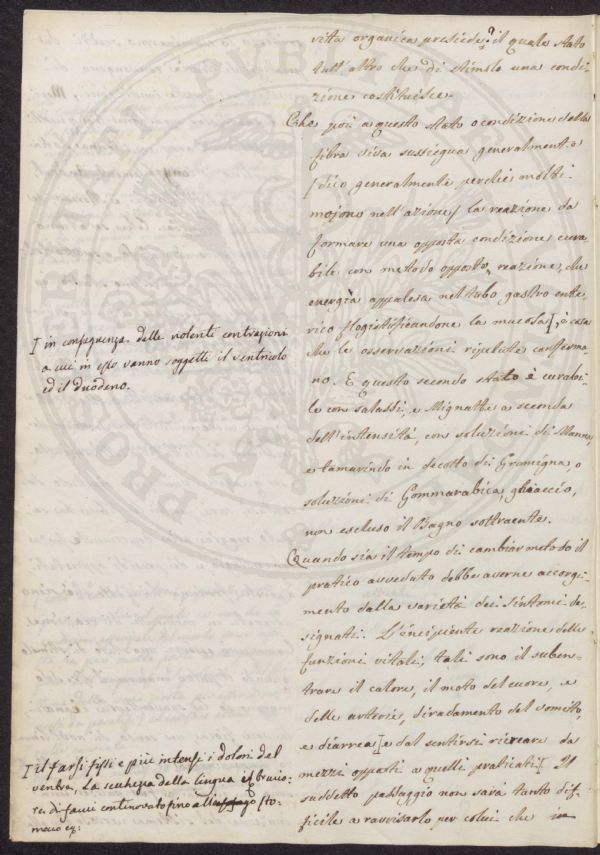 vita organica presiede? il quale stato
tutt'altro che di stimolo una condi-
zione costituisce.
Che poi a questo stato o condizione della
fibra viva sussiegua generalmente
(dico generalmente perchè molti
mojono nell'azione) la reazione da
formare una opposta condizione cura-
bile con metodo opposto, reazione, che
energia appalesa nel tubo gastro ente-
rico flogistificandone la mucosa[, è cosa
che le osservazioni ripetute conferma-
no. E questo secondo stato è curabi-
le con salassi, e Mignatte a seconda
dell'intensità, con soluzioni di Manna,
e tamarindo in decotto di Gramigna, o
soluzioni di Gommarabica, ghiaccio,
non escluso il Bagno sottraente.
Quando sia il tempo di cambiar metodo il
pratico avveduto debbe averne accorgi-
mento dalla varietà dei sintomi de-
signati. L'encipiente reazione delle
funzioni vitali, tali sono il suben-
trare il calore, il moto del cuore, e
delle arterie, diradamento del vomito,
e diarrea] e dal sentirsi ricreare da
mezzi opposti a quelli praticati[ Il
suddetto passaggio non sarà tanto dif-
ficile a ravvisarlo per colui che
[ in conseguenza delle violenti contrazioni
a cui in esso vanno soggetti il ventricolo
ed il duodeno.
[ il farsi fissi e più intensi i dolori del
ventre, La secchezza della lingua e brucio-
re di fauci continovato fino all' sto-
maco